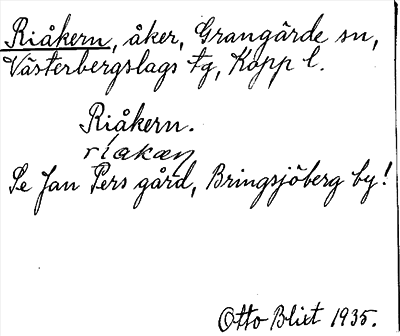 Riåkern, åker, Grangärde sn,
Västerbergslags tg, Kopp l.
Riåkern.
ríakæṇ
Se Jan Pers gård, Bringsjöberg by!
Otto Blixt 1935.